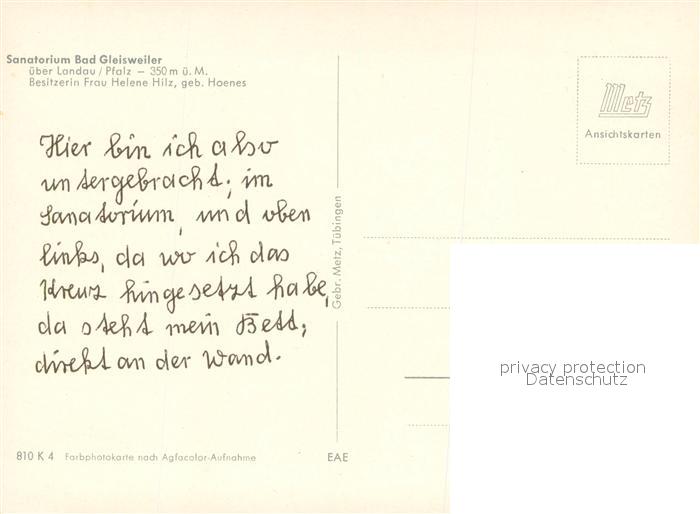 Sanatorium Bad Gleisweiler
über Landau / Pfalz – 350 m ü. M.
Besitzerin Frau Helene Hilz, geb. Hoenes
Metz
Ansichtskarten
Hier bin ich also
untergebracht; im
Sanatorium, und oben
links, da wo ich das
Kreuz hingesetzt habe,
da steht mein Bett;
direkt an der Wand.
Gebr. Metz, Tübingen
privacy protection
Datenschutz
810 K 4 Farbphotokarte nach Agfacolor-Aufnahme
EAE